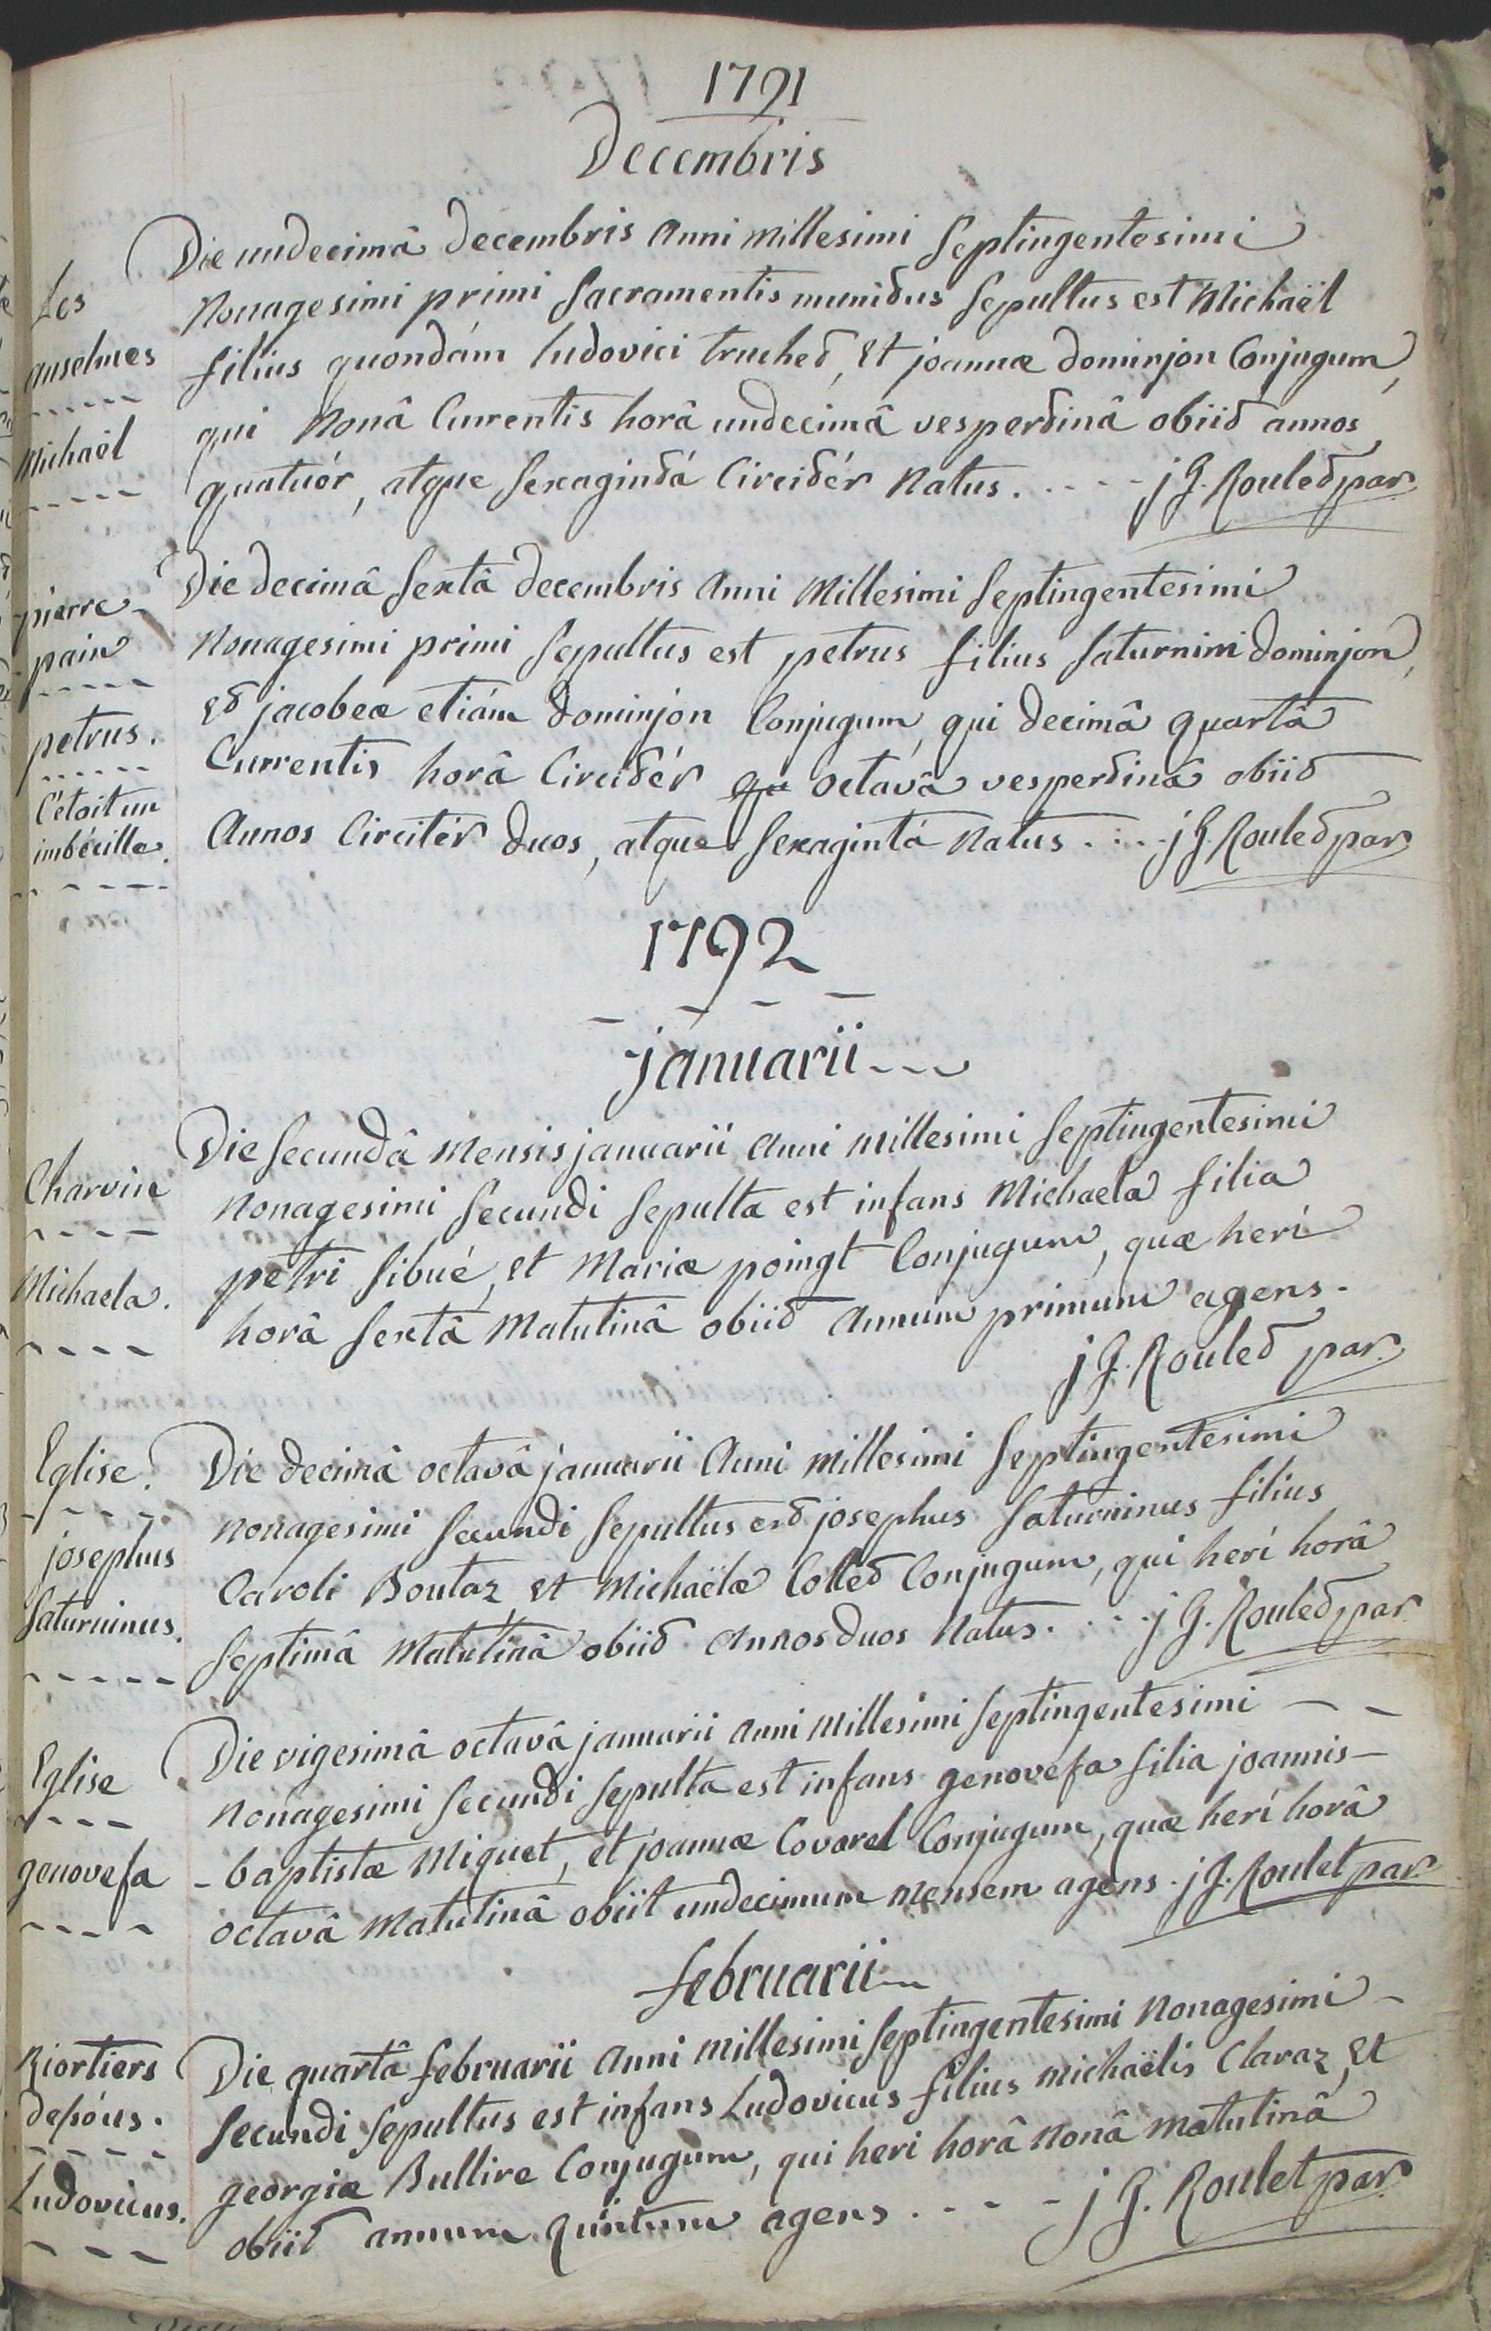 1791
Decembris
Les
anselmes
Michaël
Die undecimâ decembris anni millesimi septingentesimi
nonagesimi primi sacramentis munitus sepultus est Michaël
filius quondám ludovici truchet, et joannæ dominjon conjugum,
qui nonâ currentis horâ undecimâ vespertinâ obiit annos
quatuór, atque sexagintá circitér natus. - - - - j G. Roulet par.
pierre
pain
petrus.
C'étoit un
imbécille.
Die decimâ sextâ decembris anni millesimi septingentesimi
nonagesimi primi sepultus est petrus filius saturnini dominjon,
et jacobeæ etiám dominjon conjugum, qui decimâ quartâ
currentis horâ circitér qu octavâ vespertinâ obiit
annos circitér duos, atque sexagintá natus. - - - j G. Roulet par.
1792
januarii - - -
Charvin
Michaela.
Die secundâ mensis januarii anni millesimi septingentesimi
nonagesimi secundi sepulta est infans Michaela filia
petri sibué, et Mariæ poingt conjugum, quæ herí
horâ sextâ matutinâ obiit annum primum agens.
j G. Roulet par.
Eglise.
josephus
saturninus.
Die decimâ octavâ januarii anni millesimi septingentesimi
nonagesimi secundi sepultus est josephus saturninus filius
Caroli Boutaz et Michaëlæ Collet conjugum, qui herí horâ
septimâ matutinâ obiit annos duos natus. - - - j G. Roulet par.
Eglise
genovefa
Die vigesimâ octavâ januarii anni millesimi septingentesimi - -
nonagesimi secundi sepulta est infans genovefa filia joannis-
-baptistæ Miquet, et joannæ Covarel conjugum, quæ herí horâ
octavâ matutinâ obiit undecimum mensem agens. j G. Roulet par.
februarii
Riortiers
desóus.
Ludovicus.
Die quartâ februarii anni millesimi septingentesimi nonagesimi -
secundi sepultus est infans Ludovicus filius michaëlis Claraz, et
georgiæ Bullire conjugum, qui heri horâ nonâ matutinâ
obiit annum quintum agens. - - - j G. Roulet par.